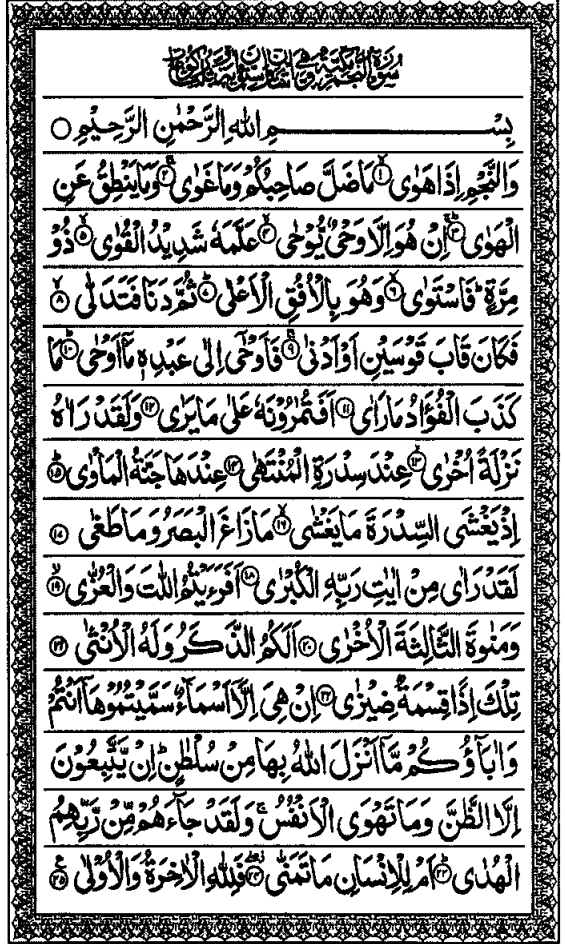 سُوْرَةُ النَّجْمِ مَكِّيَّةٌ
بِسْمِ اللهِ الرَّحْمٰنِ الرَّحِيْمِ ○
وَالنَّجْمِ اِذَا هَوٰى ۙ﴿۱﴾ مَا ضَلَّ صَاحِبُكُمْ وَمَا غَوٰى ۚ﴿۲﴾ وَمَا يَنْطِقُ عَنِ
الْهَوٰى ؕ﴿۳﴾ اِنْ هُوَ اِلَّا وَحْيٌ يُّوْحٰى ۙ﴿۴﴾ عَلَّمَهٗ شَدِيْدُ الْقُوٰى ۙ﴿۵﴾ ذُوْ
مِرَّةٍ ؕ فَاسْتَوٰى ۙ﴿۶﴾ وَهُوَ بِالْاُفُقِ الْاَعْلٰى ؕ﴿۷﴾ ثُمَّ دَنَا فَتَدَلّٰى ۙ﴿۸﴾
فَكَانَ قَابَ قَوْسَيْنِ اَوْ اَدْنٰى ۚ﴿۹﴾ فَاَوْحٰۤى اِلٰى عَبْدِهٖ مَاۤ اَوْحٰى ؕ﴿۱۰﴾ مَا
كَذَبَ الْفُؤَادُ مَا رَاٰى ﴿۱۱﴾ اَفَتُمٰرُوْنَهٗ عَلٰى مَا يَرٰى ﴿۱۲﴾ وَلَقَدْ رَاٰهُ
نَزْلَةً اُخْرٰى ۙ﴿۱۳﴾ عِنْدَ سِدْرَةِ الْمُنْتَهٰى ﴿۱۴﴾ عِنْدَهَا جَنَّةُ الْمَاْوٰى ؕ﴿۱۵﴾
اِذْ يَغْشَى السِّدْرَةَ مَا يَغْشٰى ۙ﴿۱۶﴾ مَا زَاغَ الْبَصَرُ وَمَا طَغٰى ﴿۱۷﴾
لَقَدْ رَاٰى مِنْ اٰيٰتِ رَبِّهِ الْكُبْرٰى ﴿۱۸﴾ اَفَرَءَيْتُمُ اللّٰتَ وَالْعُزّٰى ۙ﴿۱۹﴾
وَمَنٰوةَ الثَّالِثَةَ الْاُخْرٰى ﴿۲۰﴾ اَلَكُمُ الذَّكَرُ وَلَهُ الْاُنْثٰى ﴿۲۱﴾
تِلْكَ اِذًا قِسْمَةٌ ضِيْزٰى ﴿۲۲﴾ اِنْ هِيَ اِلَّاۤ اَسْمَآءٌ سَمَّيْتُمُوْهَاۤ اَنْتُمْ
وَاٰبَآؤُكُمْ مَّاۤ اَنْزَلَ اللهُ بِهَا مِنْ سُلْطٰنٍ ؕ اِنْ يَّتَّبِعُوْنَ
اِلَّا الظَّنَّ وَمَا تَهْوَى الْاَنْفُسُ ۚ وَلَقَدْ جَآءَهُمْ مِّنْ رَّبِّهِمُ
الْهُدٰى ؕ﴿۲۳﴾ اَمْ لِلْاِنْسَانِ مَا تَمَنّٰى ۖ﴿۲۴﴾ فَلِلّٰهِ الْاٰخِرَةُ وَالْاُوْلٰى ﴿۲۵﴾